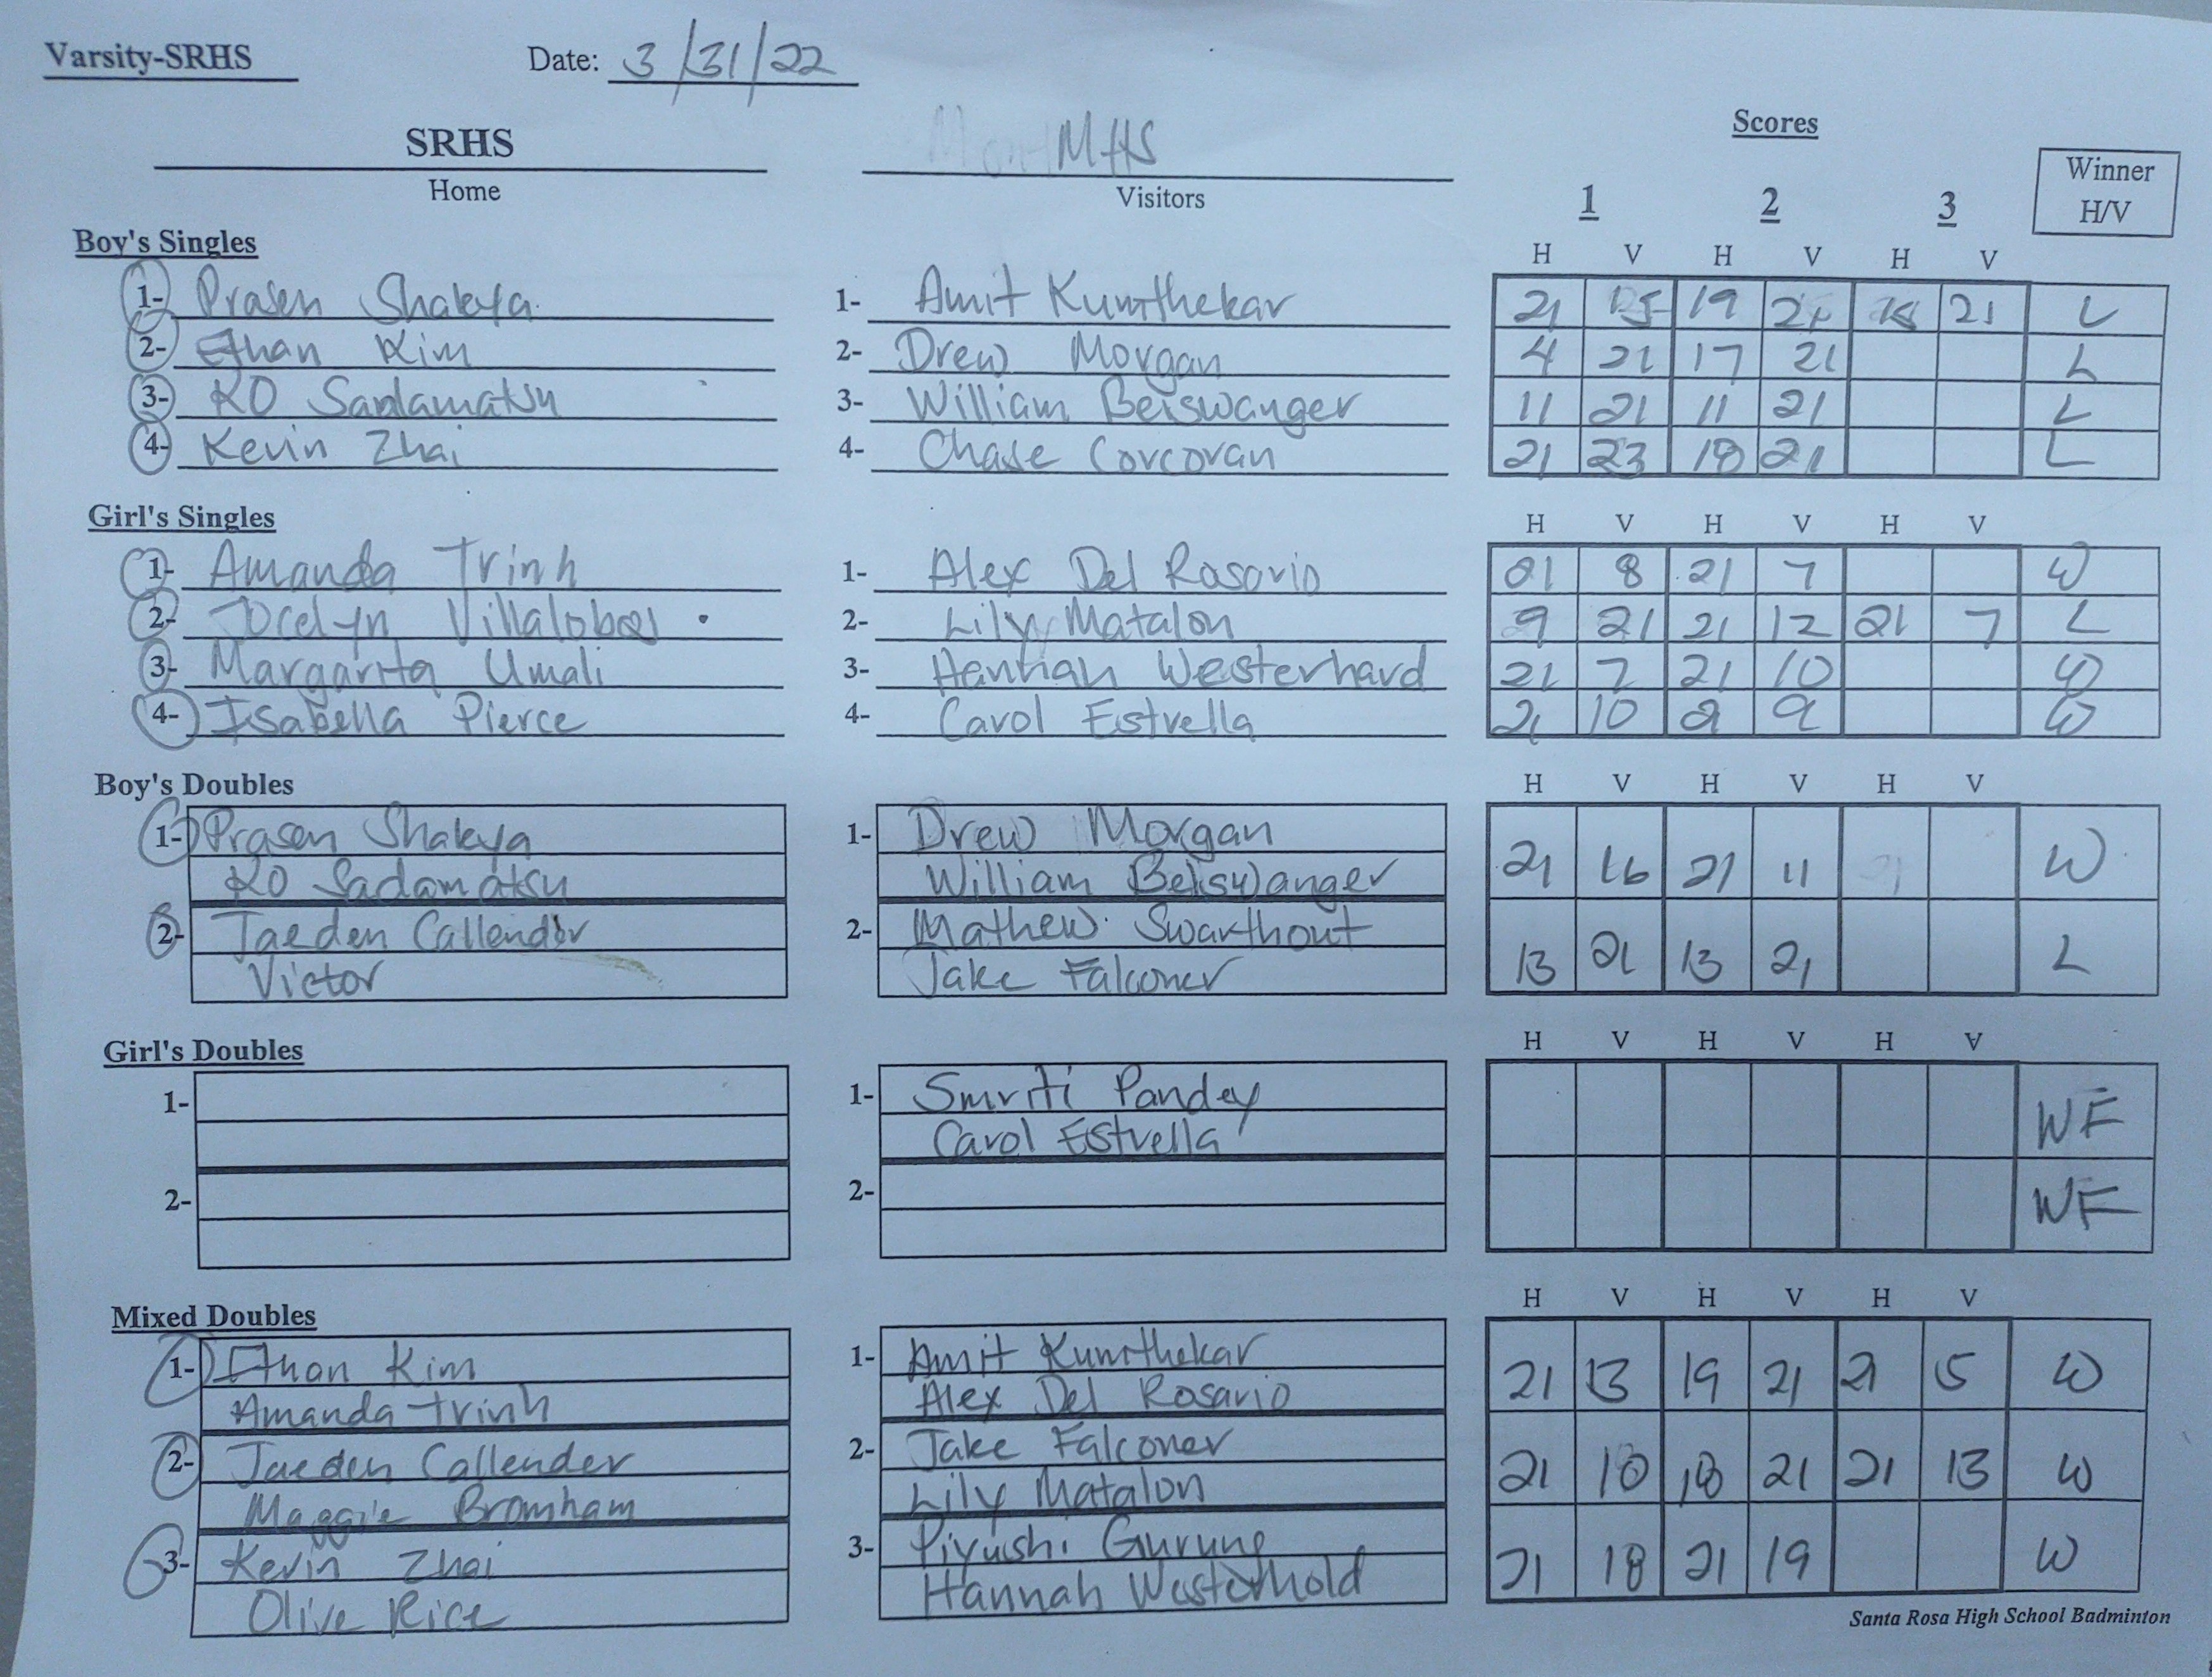 Varsity-SRHS Date: 3/31/22
SRHS MHS Scores
Home Visitors 1 2 3 Winner H/V
Boy's Singles H V H V H V
1- Prasen Shakya 1- Amit Kumthekar 21 15 19 21 21 L
2- Ethan Kim 2- Drew Morgan 4 21 17 21 L
3- KO Sadamatsu 3- William Beiswanger 11 21 11 21 L
4- Kevin Zhai 4- Chase Corcoran 21 23 18 21 L
Girl's Singles H V H V H V
1- Amanda Trinh 1- Alex Del Rosario 21 8 21 7 W
2- Jocelyn Villalobos 2- Lily Matalon 9 21 21 12 21 7 L
3- Margarita Umali 3- Hannah Westerhard 21 7 21 10 W
4- Isabella Pierce 4- Carol Estrella 21 10 21 9 W
Boy's Doubles H V H V H V
1- Prasen Shakya 1- Drew Morgan 21 16 21 11 W
KO Sadamatsu William Beiswanger
2- Jaeden Callender 2- Mathew Swarthout 13 21 13 21 L
Victor Jake Falconer
Girl's Doubles H V H V H V
1- 1- Smriti Pandey WF
Carol Estrella
2- 2- WF
Mixed Doubles H V H V H V
1- Ethan Kim 1- Amit Kumthekar 21 13 19 21 21 15 W
Amanda Trinh Alex Del Rosario
2- Jaeden Callender 2- Jake Falconer 21 18 18 21 21 13 W
Maggie Bromham Lily Matalon
3- Kevin Zhai 3- Piyushi Gurung 21 18 21 19 W
Olive Rice Hannah Westerhold
Santa Rosa High School Badminton